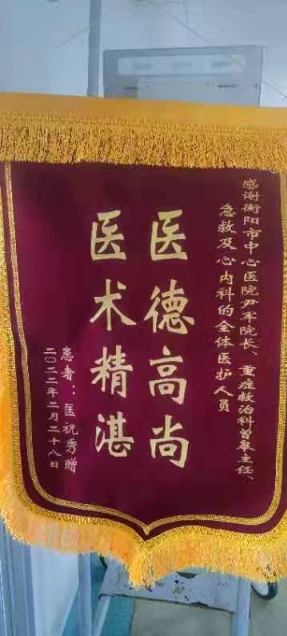 感谢衡阳市中心医院尹军院长、重症救治科曾奉主任、
急救及心内科的全体医护人员
医德高尚
医术精湛
患者：匡祝秀赠
二〇二二年二月二十八日